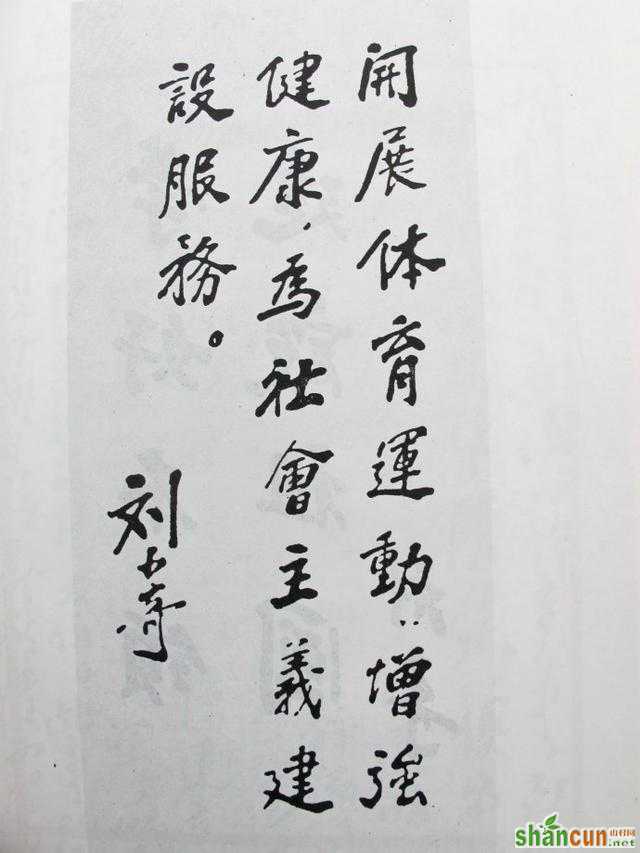 開展体育運動,增強
健康,為社會主義建
設服務。
刘少奇
shancun 山村网
.net